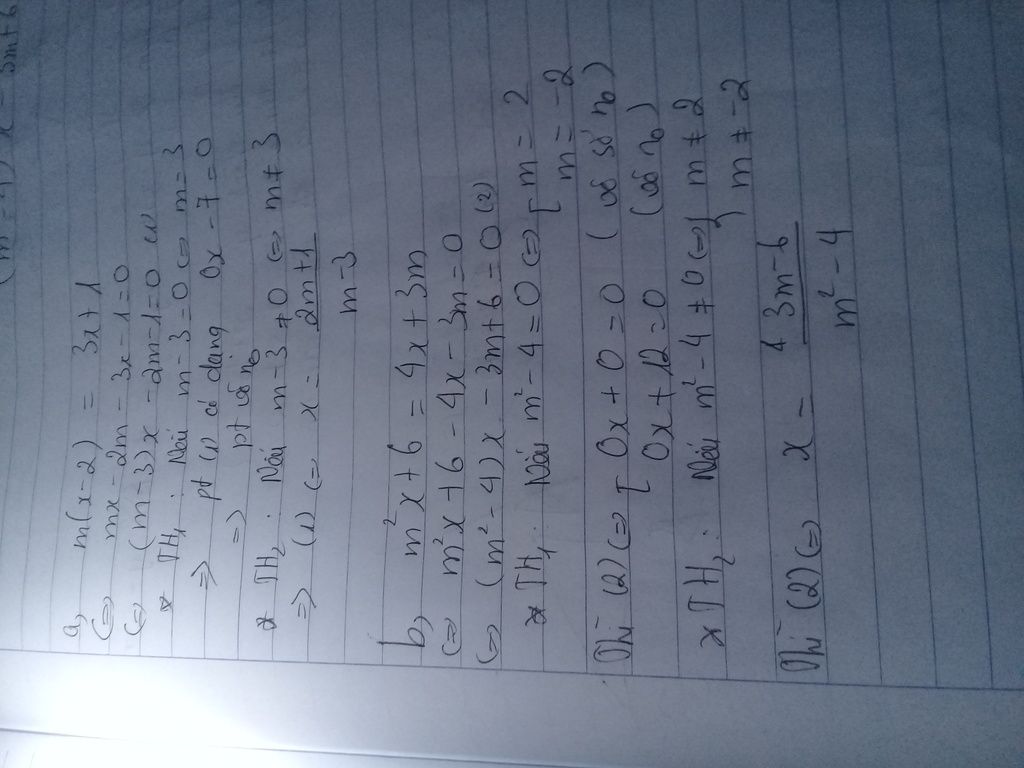 a, m(x-2) = 3x+1
<=> mx - 2m - 3x - 1 = 0
<=> (m-3)x - 2m - 1 = 0 (1)
* TH1: Nếu m-3=0 <=> m=3
=> pt (1) có dạng 0x-7=0
=> pt vô no
* TH2: Nếu m-3≠0 <=> m≠3
=> (1) <=> x = (2m+1)/(m-3)
b, m²x+6 = 4x+3m
<=> m²x+6-4x-3m=0
<=> (m²-4)x-3m+6=0 (2)
* TH1: Nếu m²-4=0 <=> [ m=2
m=-2
Thì (2) <=> [ 0x+0=0 (vô số no)
0x+12=0 (vô no)
* TH2: Nếu m²-4≠0 <=> { m≠2
m≠-2
Thì (2) <=> x = (3m-6)/(m²-4)